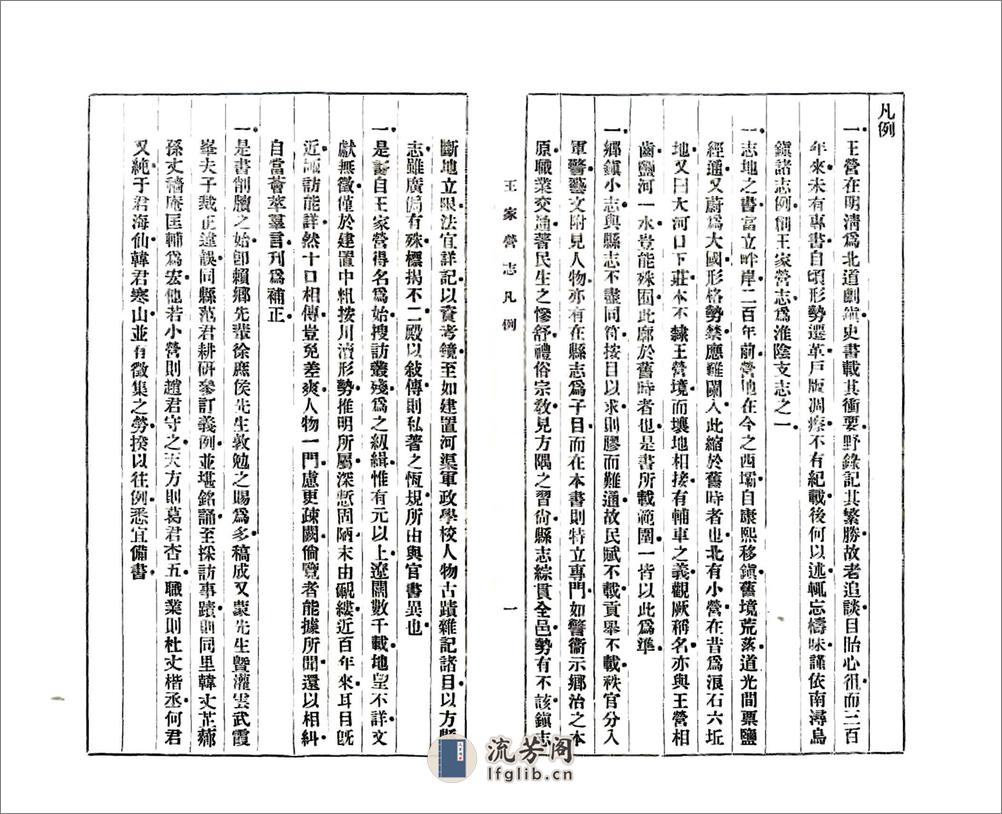 凡例
一王營在明淸爲北道劇鎭史書載其衝要野錄記其繁勝故老追談目眙心徂而三百
年來未有專書自頃形勢遷革戶版凋瘵不有紀載後何以述輒忘檮昧謹依南潯烏
鎭諸志例創王家營志爲淮陰支志之一
一志地之書當立畔岸二百年前營地在今之西壩自康熙移鎭舊境荒落道光間票鹽
經通又蔚爲大國形格勢禁應難闌入此縮於舊時者也北有小營在昔爲浪石六坵
地又曰大河口下莊本不隸王營境而壤地相接有輔車之義觀厥稱名亦與王營相
齒鹽河一水豈能殊囿此廓於舊時者也是書所載範圍一皆以此爲準
一鄉鎭小志與縣志不盡同符按目以求則膠而難通故民賦不載貢舉不載秩官分入
軍警藝文附見人物亦有在縣志爲子目而在本書則特立專門如警衞示鄉治之本
原職業交通著民生之慘舒禮俗宗敎見方隅之習尙縣志綜貫全邑勢有不該鎭志
王家營志凡例
一
斷地立限法宜詳記以資考鏡至如建置河渠軍政學校人物古蹟雜記諸目以方縣
志雖廣偏有殊標揭不二殿以敍傳則私著之恆規所由與官書異也
一是書自王家營得名爲始搜訪叢殘爲之紉緝惟有元以上遼闊數千載地望不詳文
獻無徵僅於建置中粗按川瀆形勢推明所屬深慙固陋末由覼縷近百年來耳目旣
近諏訪能詳然十口相傳豈免差爽人物一門慮更疎闕倘覽者能據所聞還以相糾
自當薈萃羣言刊爲補正
一是書削牘之始卽賴鄉先輩徐應侯先生敦勉之賜爲多稿成又蒙先生曁灌雲武霞
峯夫子裁正違誤同縣范君耕硏參訂義例並堪銘誦至採訪事蹟則同里韓丈芷薌
孫丈藹庵匡輔爲宏他若小營則趙君守之天方則葛君杏五職業則杜丈楷丞何君
又純于君海仙韓君寒山並有徵集之勞揆以往例悉宜備書
流芳阁
lfglib.cn